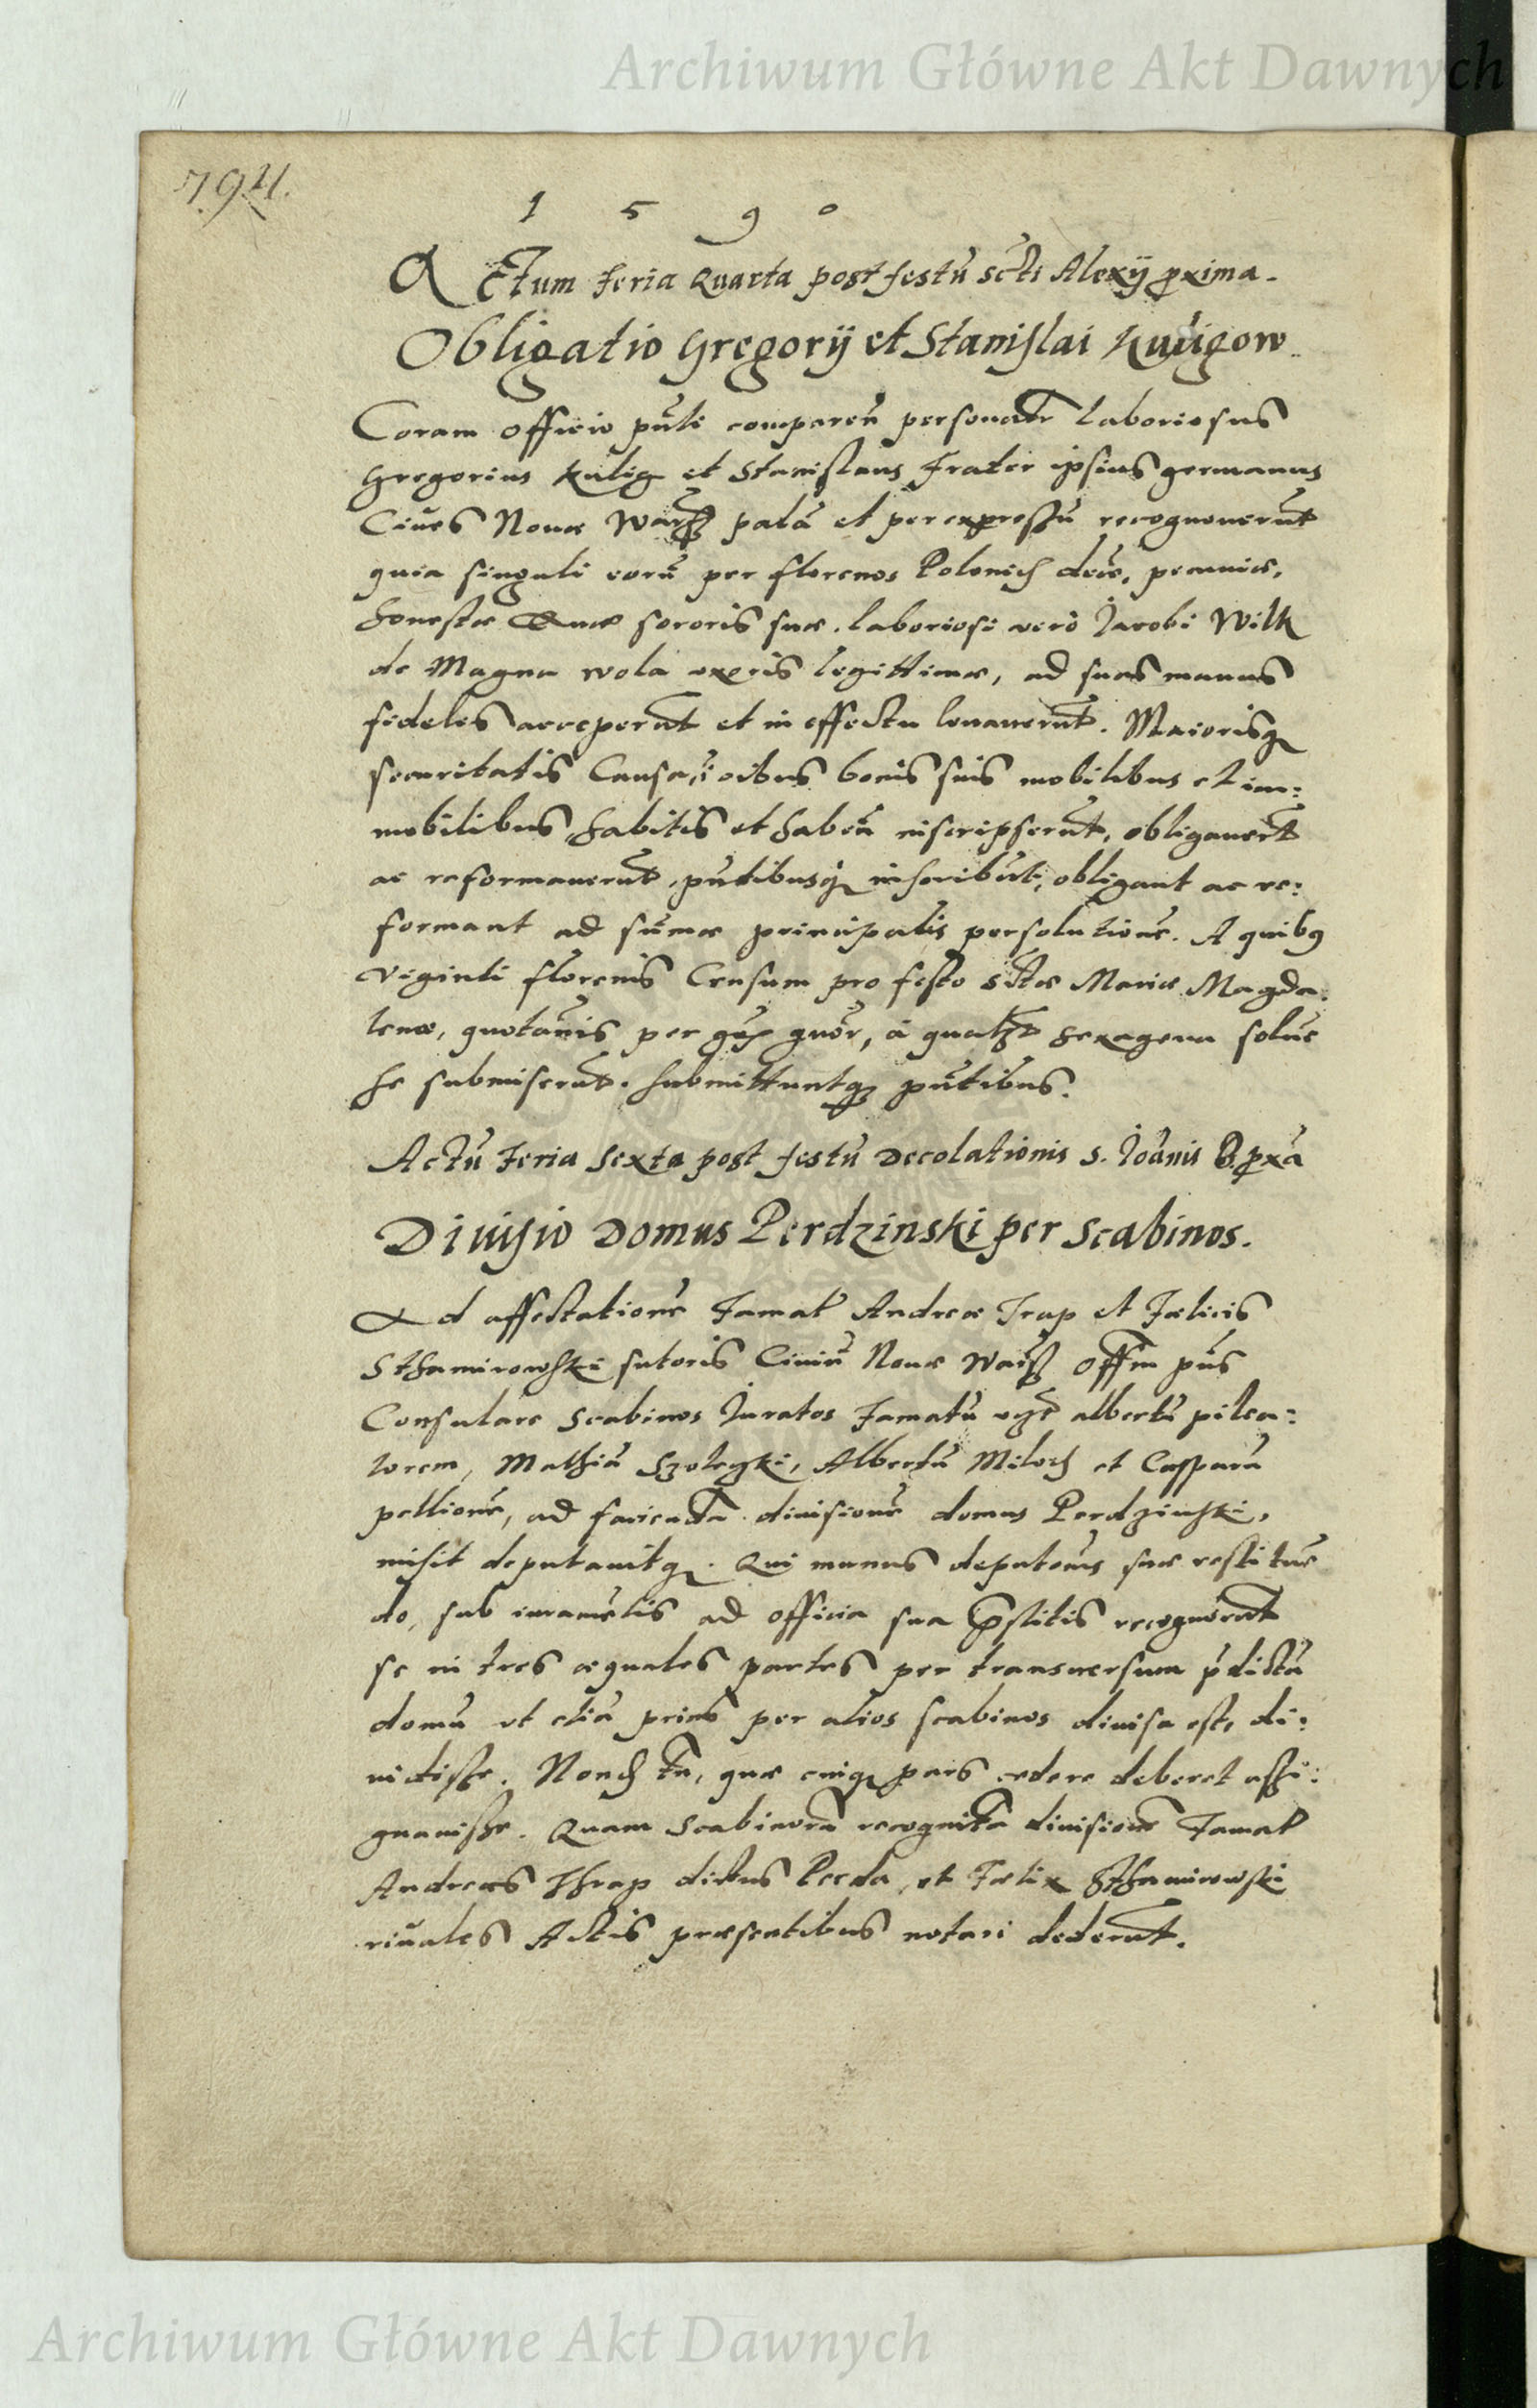 Archiwum Główne Akt Dawnych
794.
1 5 9 0
ACtum feria Quarta post festũ scti Alexij proxima.
Obligatio Gregorij et Stanislai Kuligow
Coram officio pñti comparen personalr laboriosus
Gregorius Kulig et Stanislaus Frater ipsius germanus
Ciues Nouæ Warß palã et per expressũ recognouerũt
quia singuli eorũ per florenos Polonich decẽ, pecuniæ,
honestæ Annæ sororis suæ, laboriosi verò Jacobi Wilk
de Magna wola vxoris legittimæ, ad suas manus
fideles acceperũt et in effectu leuauerũt. Maiorisq
securitatis Causa, ĩ oibus bonis suis mobilibus et im:
mobilibus habitis et haben inscripserũt, obligauerũt
ac reformauerũt, pñtibusq inscribũt, obligant ac re:
formant ad sũmæ principalis persolutionẽ. A quibus
viginti florenis Censum pro festo sctæ Mariæ Magda:
lenæ, quotãnis per quor, à sexagena soluẽ
se submiserũt. submittuntq pñtibus.
Actũ feria sexta post festũ Decolationis S. Joãnis B. proxã
Diuisio Domus Perdzinski per Scabinos.
Ad affectationẽ Famat Andreæ Trap et Fælicis
Sthamirowski sutoris Ciuiũ Nouæ Warß offm pñs
Consulare Scabinos Juratos Famatũ albertũ pilea:
torem, Mathiã Szolczki, Albertũ Miloch et Casparũ
pellionẽ, ad faciendã diuisionẽ domus Perdzinski,
misit deputauitq. Qui munus deputaõis suæ restituẽ
do, sub iuramẽtis ad officia sua præstitis recognorũt
se in tres æquales partes per transuersum prdictã
domũ vt etiã prius per alios scabinos diuisa est, di:
uidisse. Nondũ tñ, quæ cuiq pars cedere deberet assi:
gnauisse. Quam Scabinorũ recognitã diuisionẽ Famat
Andreas Thrap dictus Perda, et Fælix Sthamirowski
riuales Actis præsentibus notari dederũt.
Archiwum Główne Akt Dawnych